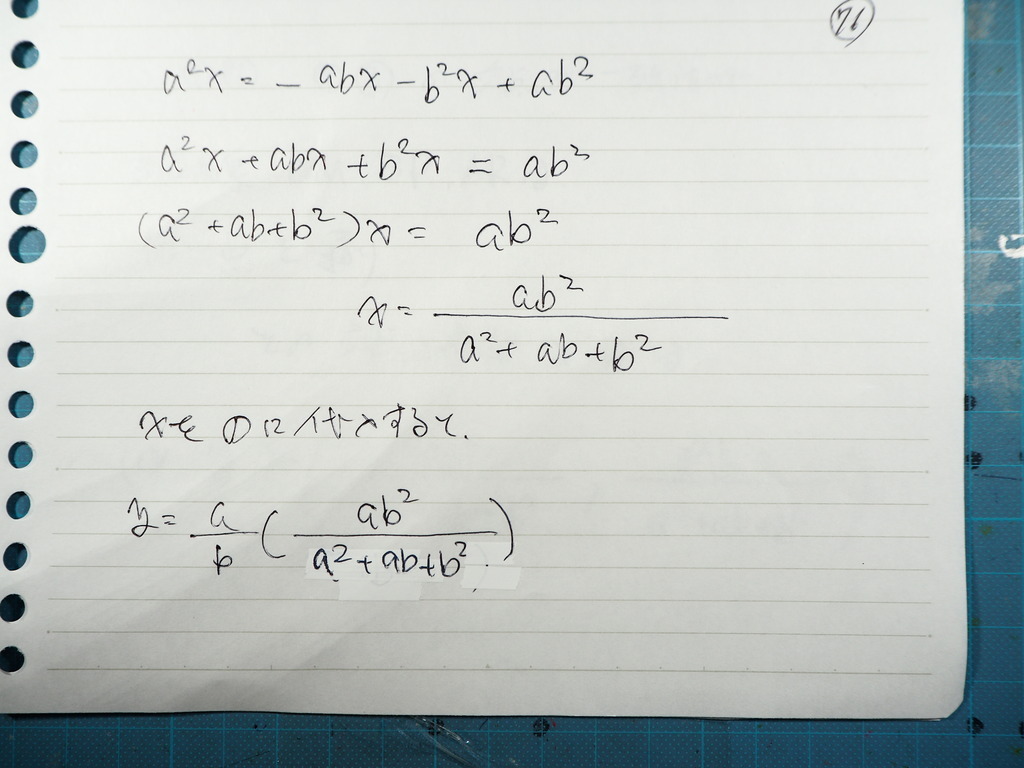 76
a²x = - abx - b²x + ab²
a²x + abx + b²x = ab²
(a² + ab + b²)x = ab²
x = ab² / (a² + ab + b²)
xを①に代入すると.
y = a/b (ab² / (a² + ab + b²))